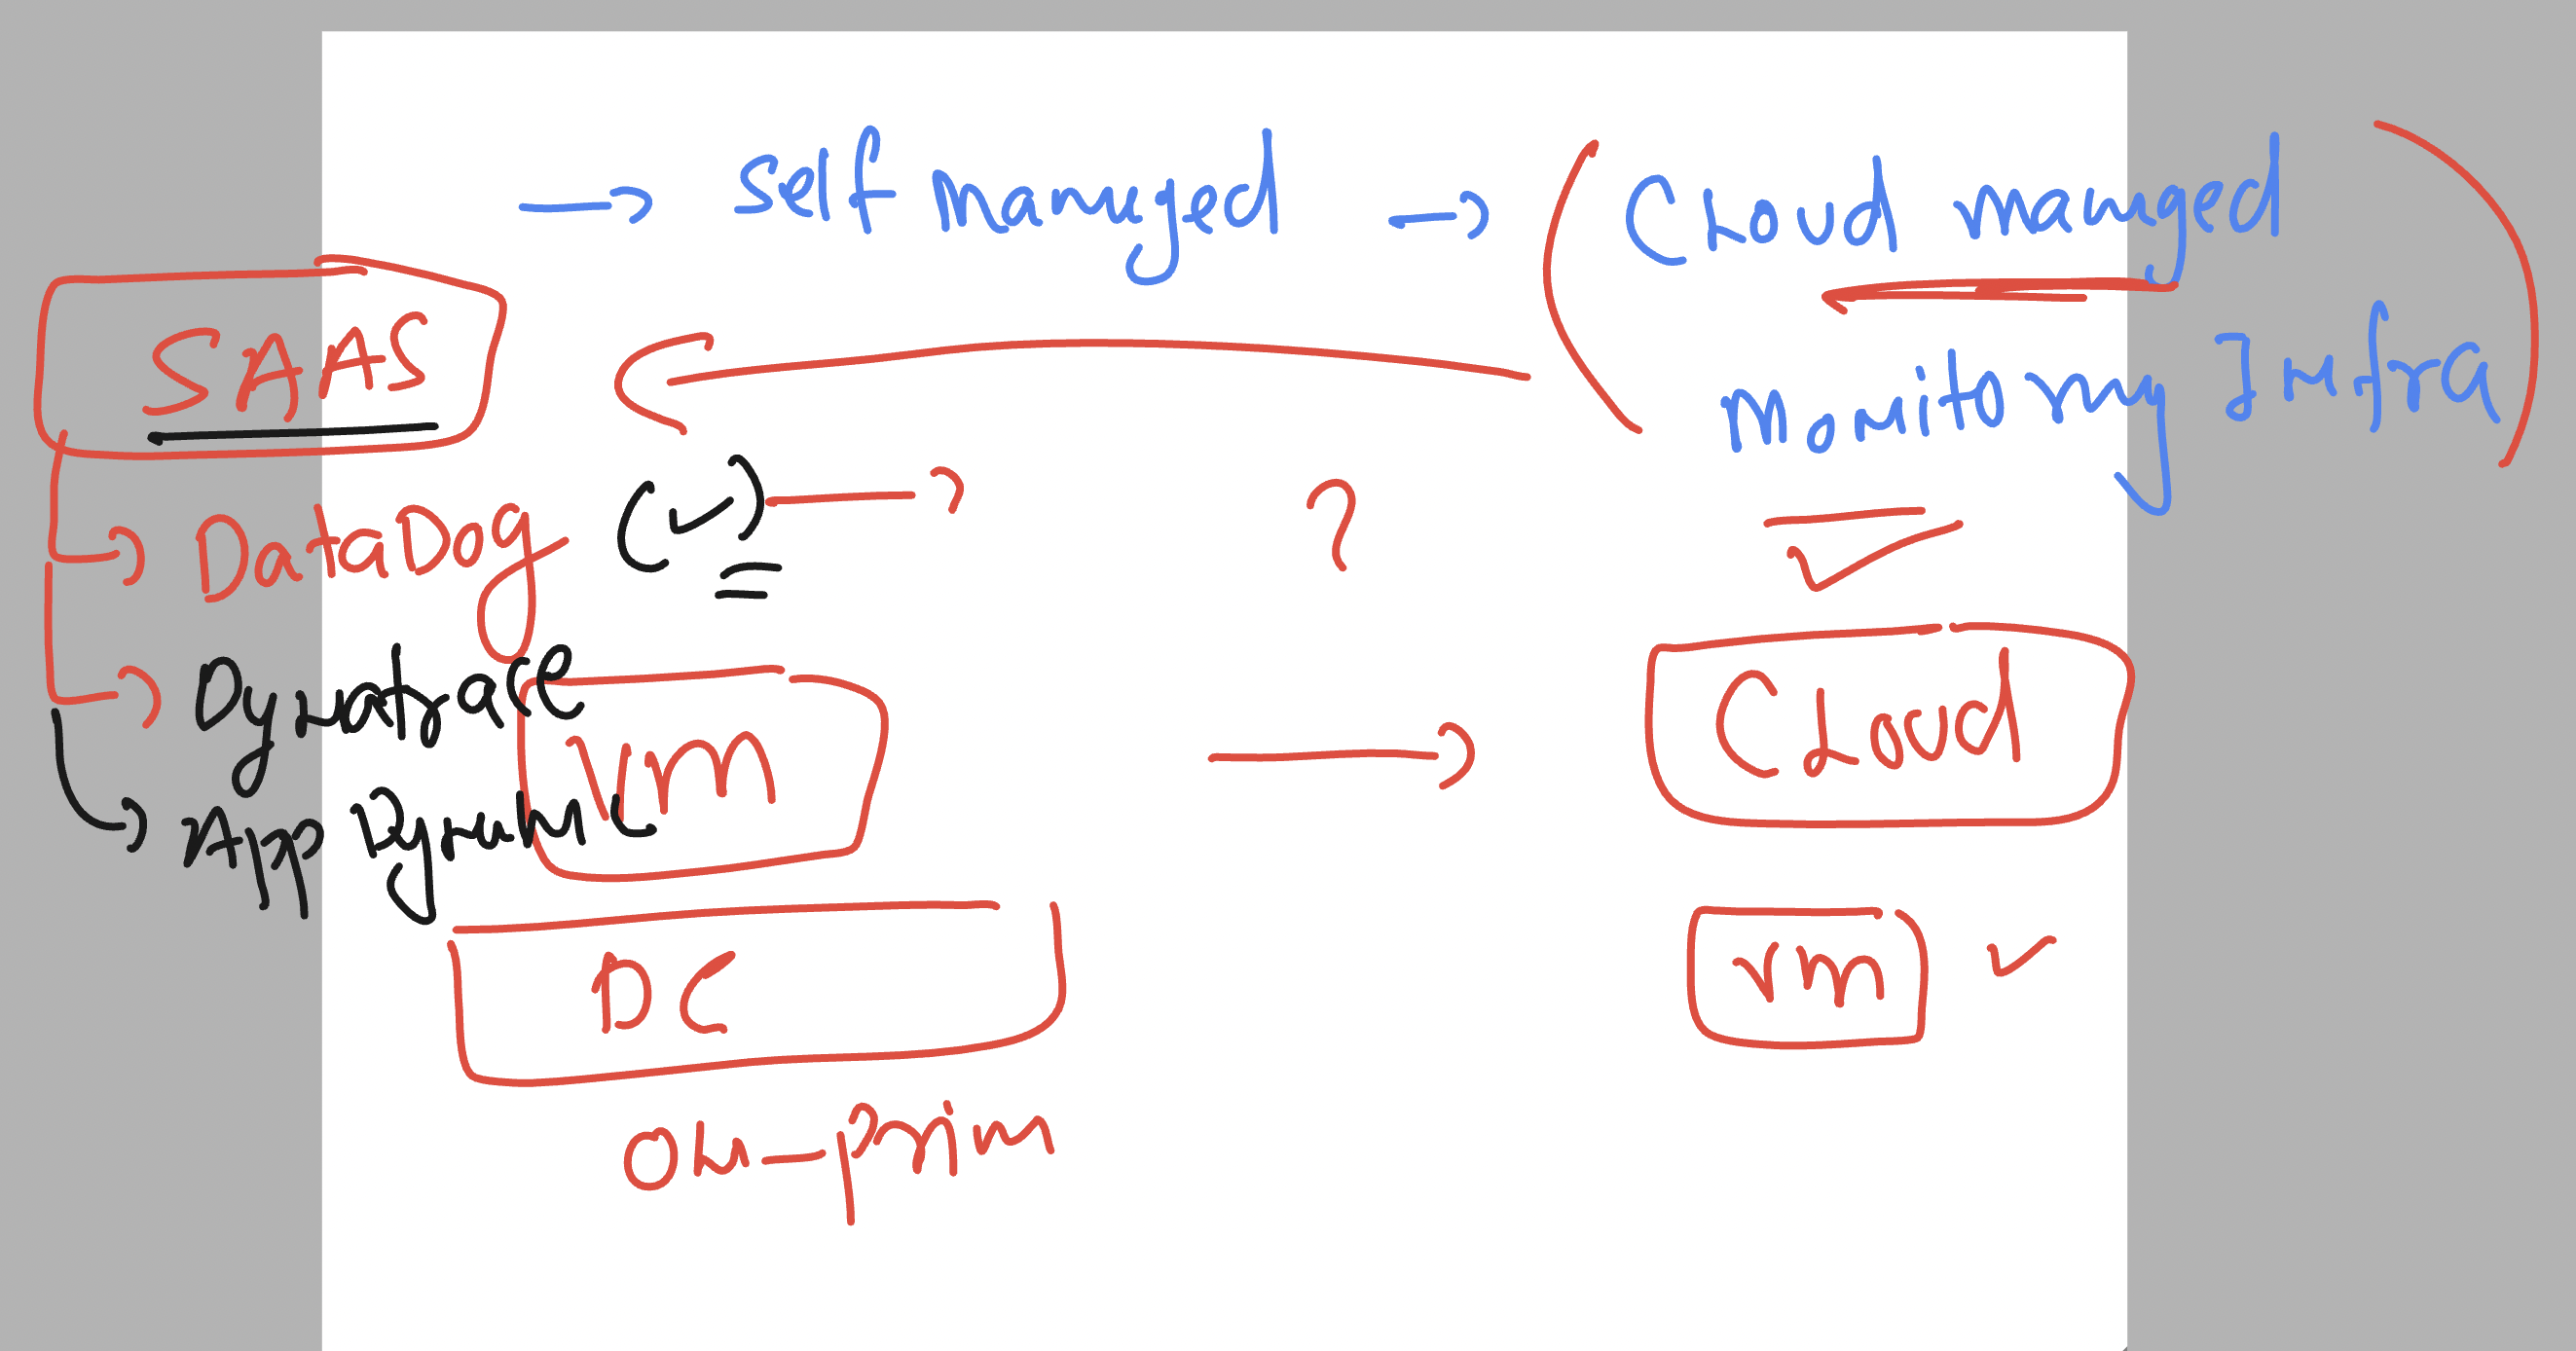 → Self Managed → Cloud managed
Monitoring Infra
SAAS
→ DataDog (✓) — ?
?
→ Dynatrace
→ App Dynamic
VM
→
Cloud
DC
VM ✓
On-prim